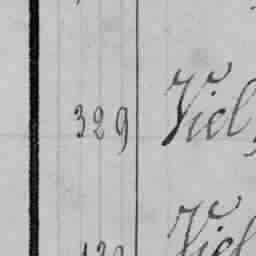 329 Viel
Viel